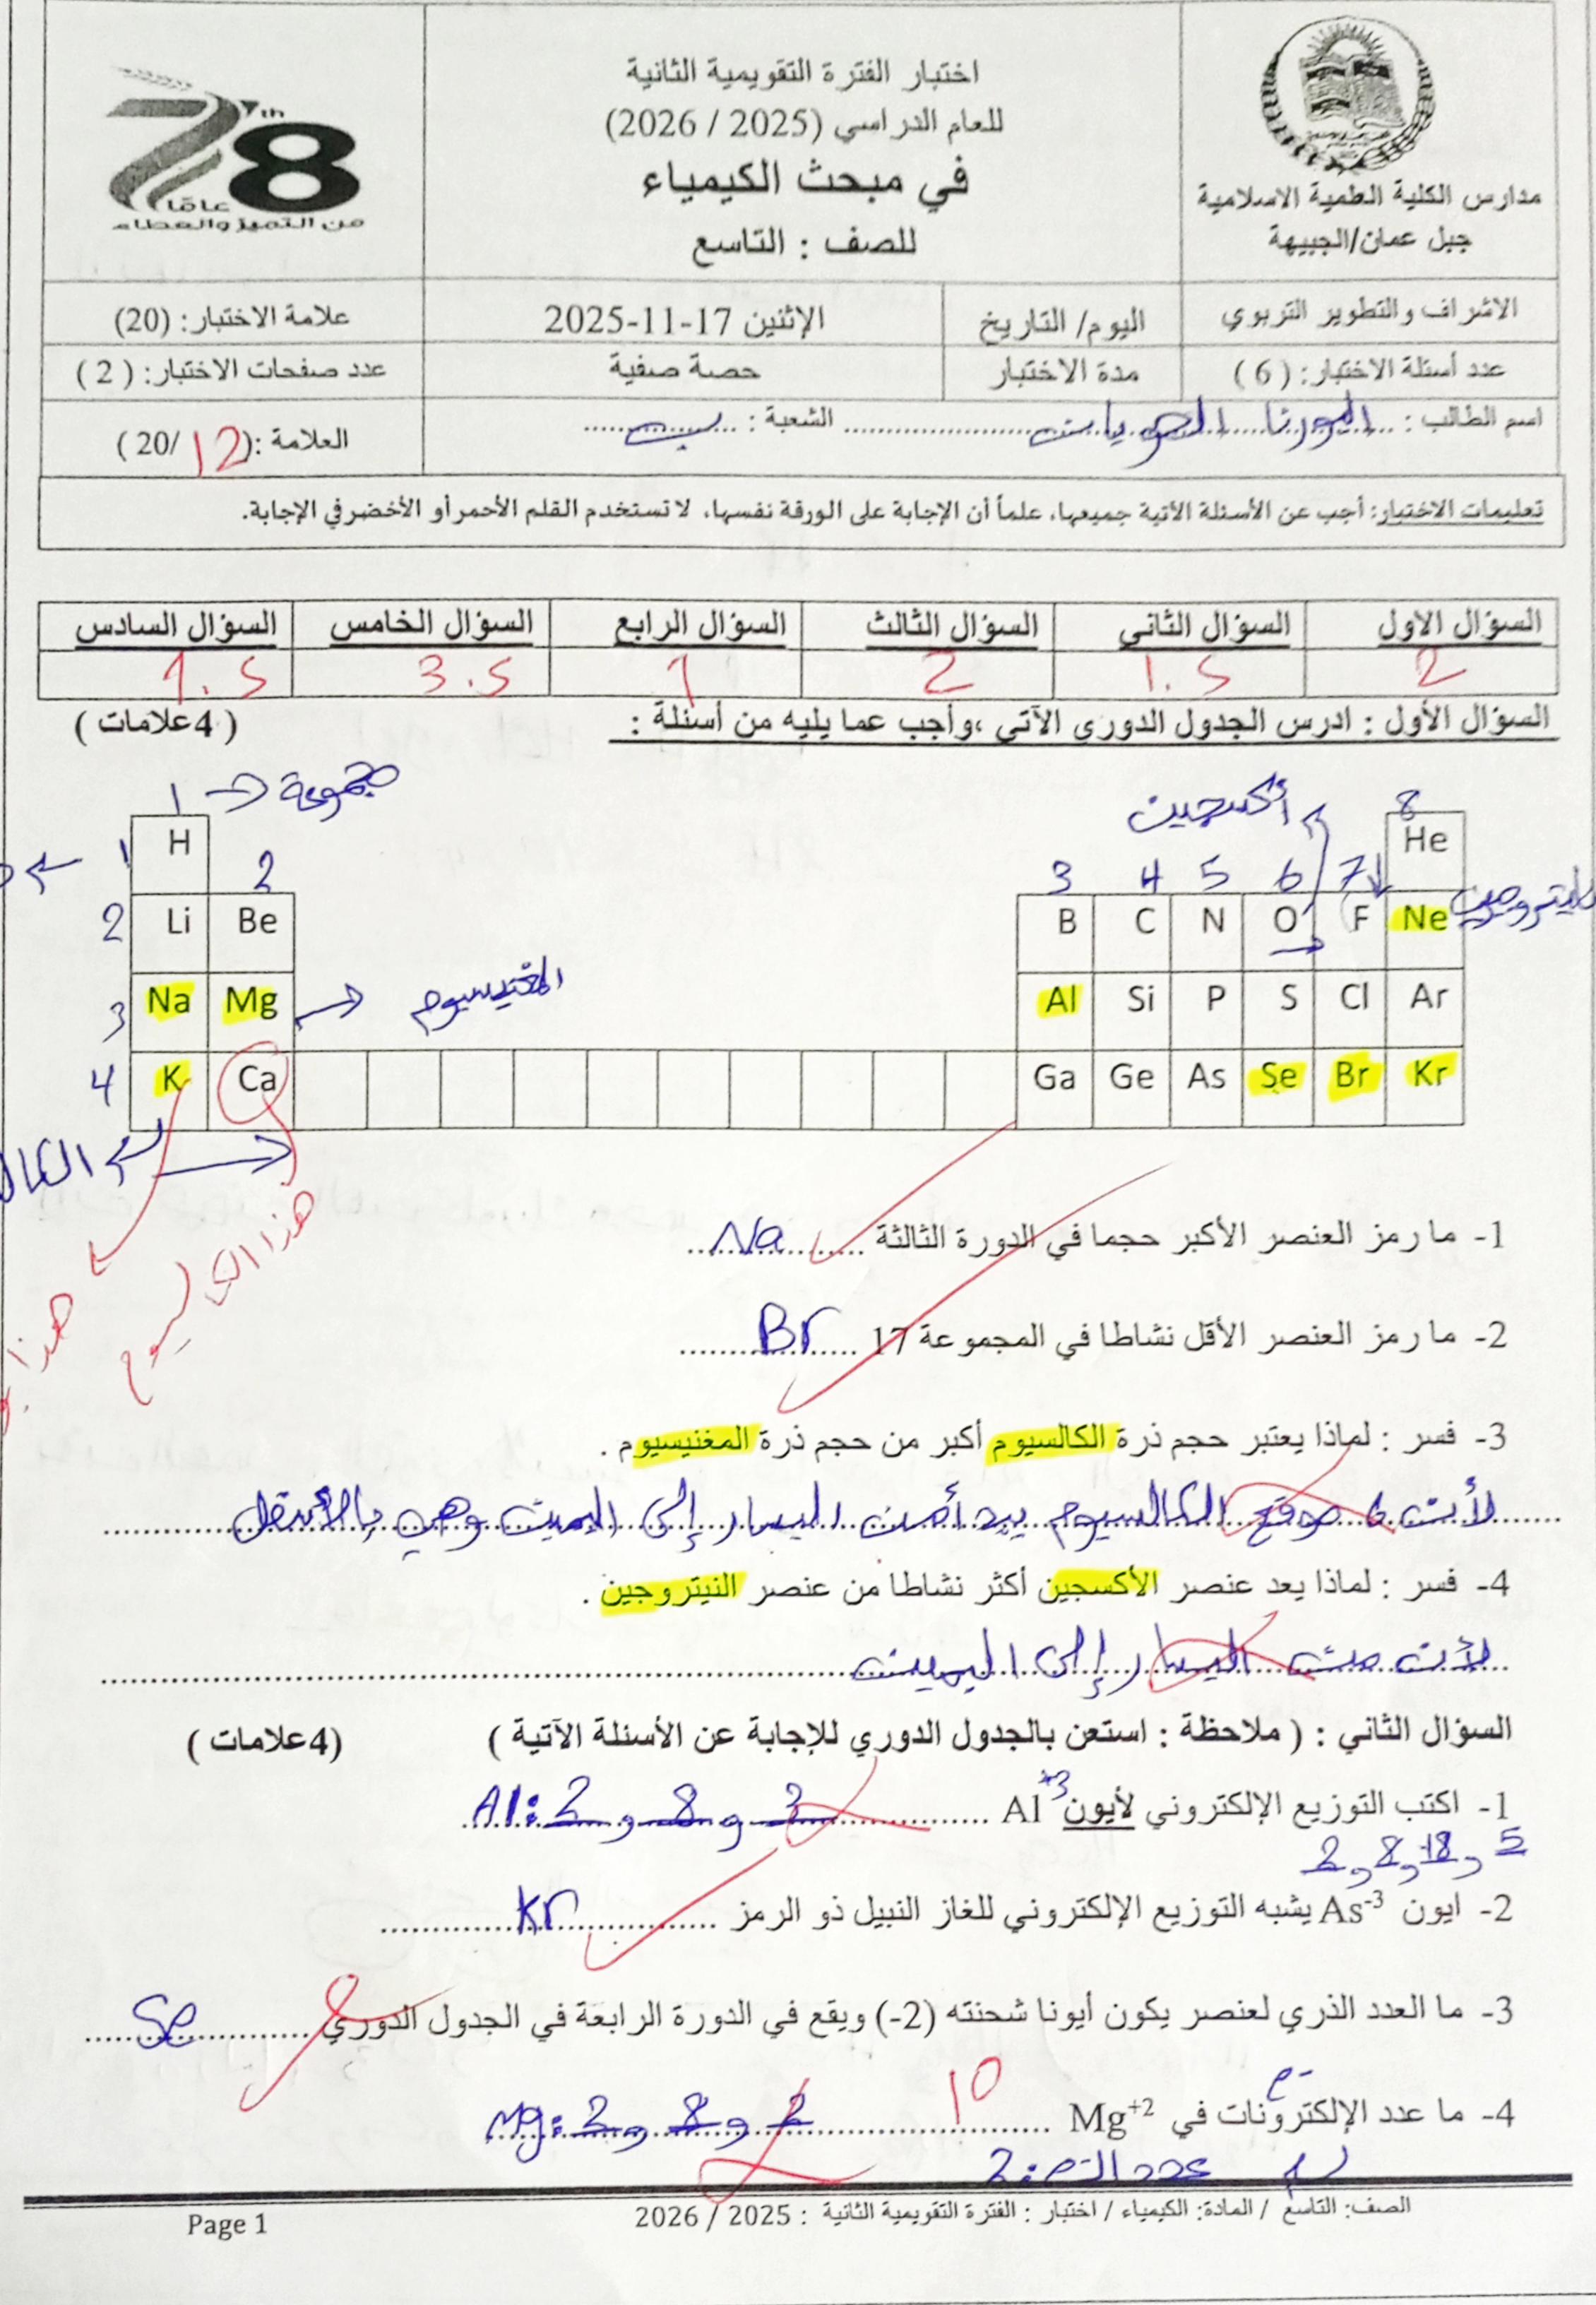 78th
عامًا
من التميز والعطاء
اختبار الفترة التقويمية الثانية
للعام الدراسي (2025 / 2026)
في مبحث الكيمياء
للصف : التاسع
مدارس الكلية العلمية الاسلامية
جبل عمان/الجبيهة
الاشراف والتطوير التربوي
اليوم/ التاريخ
الإثنين 17-11-2025
علامة الاختبار: (20)
عدد أسئلة الاختبار: ( 6 )
مدة الاختبار
حصة صفية
عدد صفحات الاختبار: ( 2 )
اسم الطالب : الشعبة : ب
العلامة :( 12 /20 )
تعليمات الاختبار: أجب عن الأسئلة الآتية جميعها، علماً أن الإجابة على الورقة نفسها، لا تستخدم القلم الأحمر أو الأخضر في الإجابة.
السؤال الاول السؤال الثاني السؤال الثالث السؤال الرابع السؤال الخامس السؤال السادس
2 1.5 2 1 3.5 1.5
السؤال الأول : ادرس الجدول الدوري الآتي ،وأجب عما يليه من أسئلة : ( 4علامات )
1 → مجموعة
أكسجين
8
1 H He
2 3 4 5 6 7
2 Li Be B C N O F Ne
نيتروجين
3 Na Mg → المغنيسيوم Al Si P S Cl Ar
4 K Ca Ga Ge As Se Br Kr
هذا الكالسيوم
هذا
1- ما رمز العنصر الأكبر حجما في الدورة الثالثة Na
2- ما رمز العنصر الأقل نشاطا في المجموعة 17 Br
3- فسر : لماذا يعتبر حجم ذرة الكالسيوم أكبر من حجم ذرة المغنيسيوم .
لأن موقع الكالسيوم يبدأ من اليسار إلى اليمين وهي بالأسفل
4- فسر : لماذا يعد عنصر الأكسجين أكثر نشاطا من عنصر النيتروجين .
لأن من اليسار إلى اليمين
السؤال الثاني : ( ملاحظة : استعن بالجدول الدوري للإجابة عن الأسئلة الآتية ) (4علامات )
1- اكتب التوزيع الإلكتروني لأيون Al+3 Al: 2 , 8 , 3
2 , 8 , 18 , 5
2- ايون As-3 يشبه التوزيع الإلكتروني للغاز النبيل ذو الرمز Kr
3- ما العدد الذري لعنصر يكون أيونا شحنته (2-) ويقع في الدورة الرابعة في الجدول الدوري Se
e-
4- ما عدد الإلكترونات في Mg+2 10 Mg: 2 , 8 , 2
الصف: التاسع / المادة: الكيمياء / اختبار : الفترة التقويمية الثانية : 2025 / 2026
Page 1